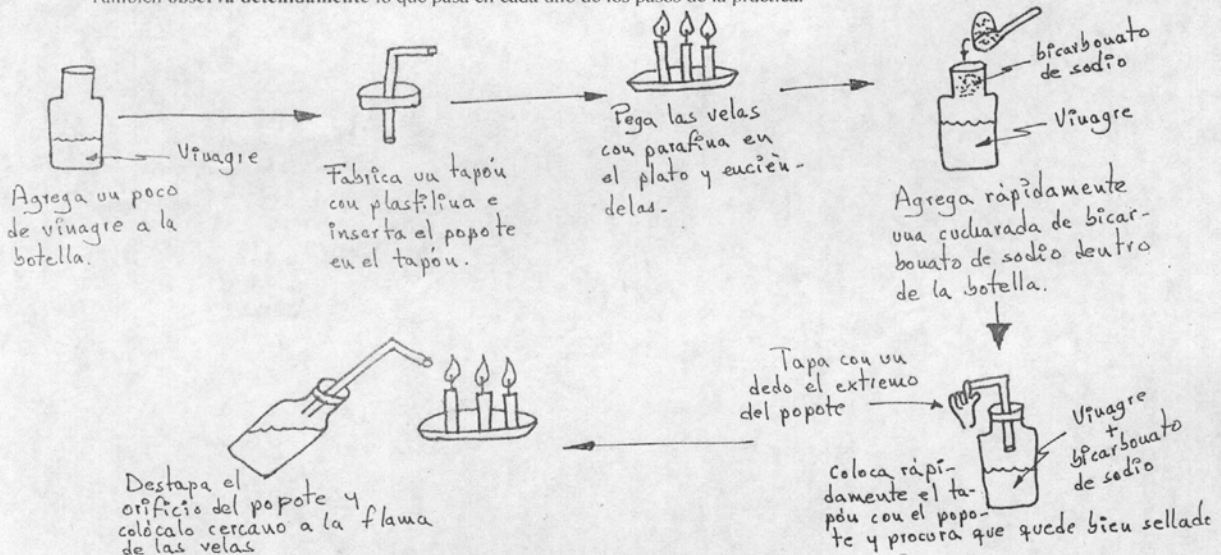 También observa detenidamente lo que pasa en cada uno de los pasos de la práctica.
Vinagre
Agrega un poco
de vinagre a la
botella.
Fabrica un tapón
con plastilina e
inserta el popote
en el tapón.
Pega las velas
con parafina en
el plato y encién-
delas.
bicarbonato
de sodio
Vinagre
Agrega rápidamente
una cucharada de bicar-
bonato de sodio dentro
de la botella.
Tapa con un
dedo el extremo
del popote
Vinagre
+
bicarbonato
de sodio
Coloca rápi-
damente el ta-
pón con el popo-
te y procura que quede bien sellade
Destapa el
orificio del popote y
colócalo cercano a la flama
de las velas